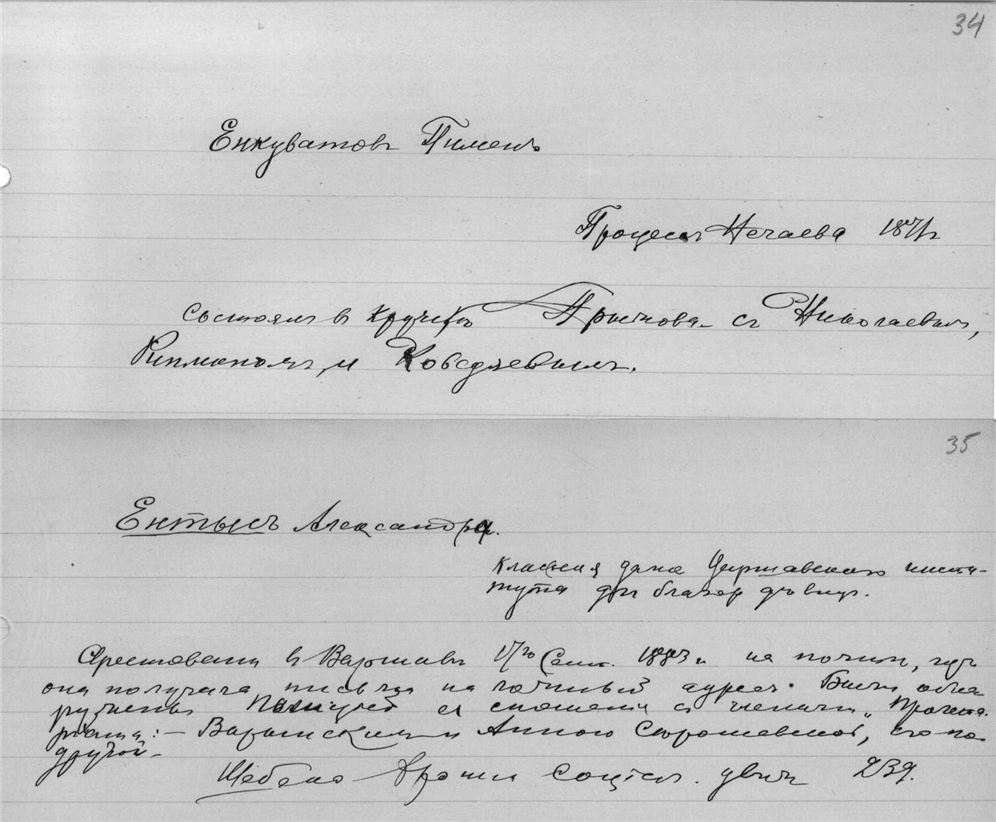 34
Енкуватовъ Пименъ
Процессъ Нечаева 1871 г
состоялъ в кружкѣ Прыжова съ Николаевымъ,
Рипманомъ и Коведяевымъ.
35
Ентысъ Александра.
классная дама Варшавскаго инсти-
тута для благор дѣвиц.
Арестована в Варшавѣ 17го Сент. 1883 г на почтѣ, гдѣ
она получала письма на ложный адресъ. Были обна
ружены сношенія съ членами „Пролета
рята: – Варынскимъ и Анною его по
другой.
Шебеко Хроника Соціал. движ 239.